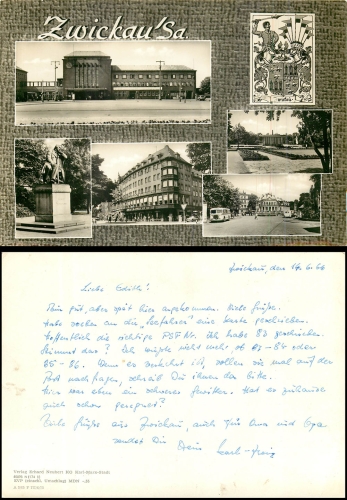 Zwickau/Sa.
Zwickau, den 14. 6. 66
Liebe Edith!
Bin gut, aber spät hier angekommen. Viele Grüße.
Habe soeben an die „Seefahrer" eine Karte geschrieben.
Hoffentlich die richtige PSF Nr. Ich habe 83 geschrieben
Stimmt das? Ich wußte nicht mehr, ob 83 - 84 oder
85 - 86. Wenn es verkehrt ist, sollen sie mal auf der
Post nachfragen, schreib Du ihnen das bitte.
Hier war eben ein schweres Gewitter. Hat es zuhause
auch schon geregnet?
Viele Grüße aus Zwickau, auch für Oma und Opa
sendet Dir
Dein Karl-Heinz
Verlag Erhard Neubert KG Karl-Marx-Stadt